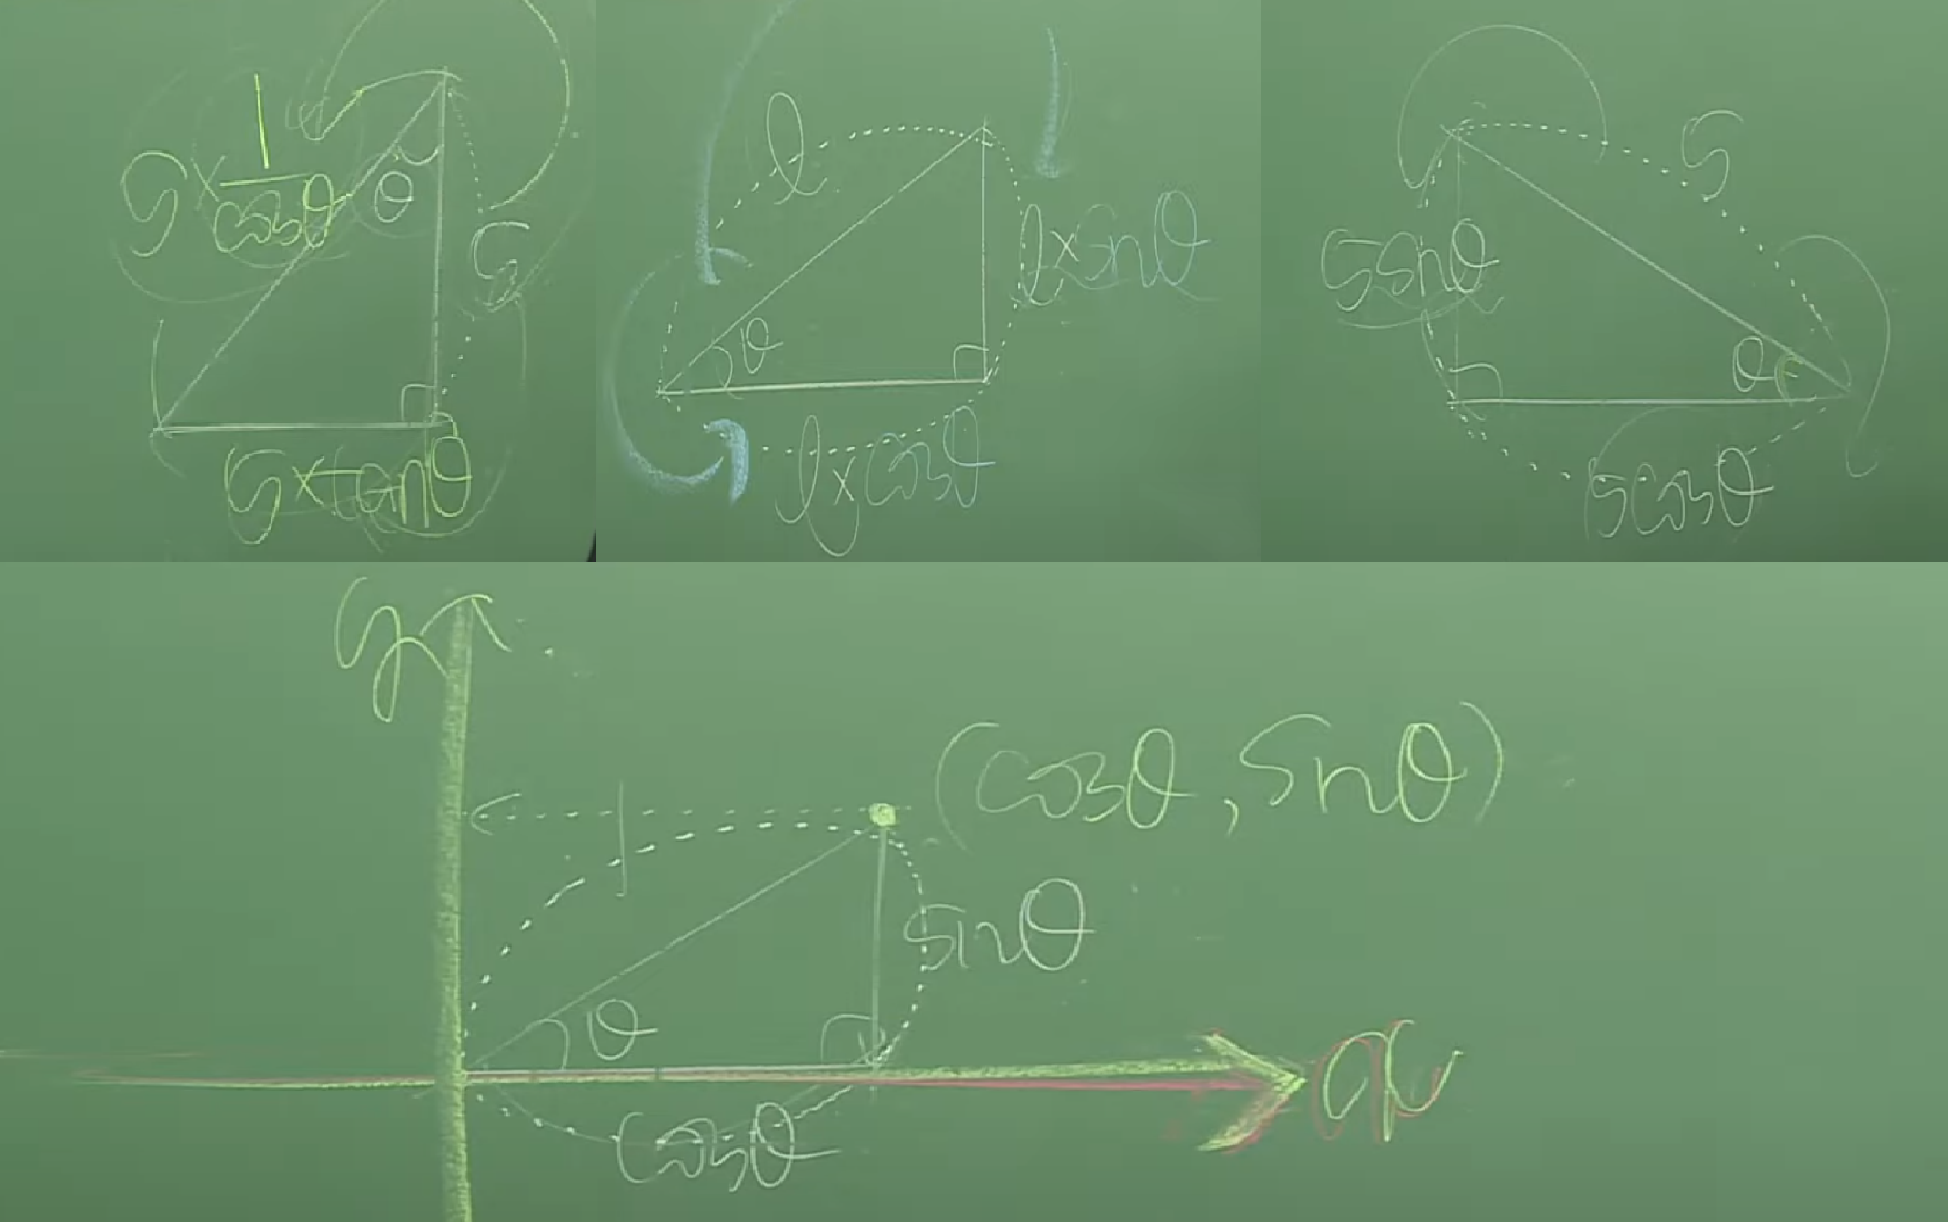 5 × 1/cosθ
θ
5
5×tanθ
l
θ
l×sinθ
l×cosθ
5
5sinθ
θ
5cosθ
y
1
(cosθ, sinθ)
sinθ
θ
cosθ
x